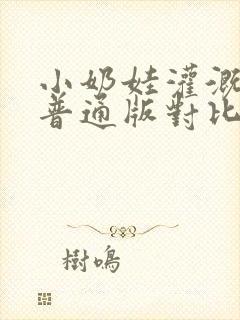 小奶娃灌溉
普通版對比
樹鳴